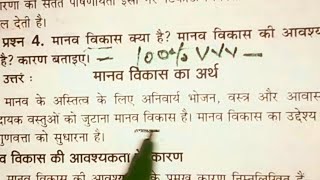 की सतत पोषणीयता
देता है।
प्रश्न 4. मानव विकास क्या है? मानव विकास की आवश्य
है? कारण बताइए। = 100% VVV -
उत्तरः मानव विकास का अर्थ
मानव के अस्तित्व के लिए अनिवार्य भोजन, वस्त्र और आवास
दायक वस्तुओं को जुटाना मानव विकास है। मानव विकास का उद्देश्य
गुणवत्ता को सुधारना है।
विकास की आवश्यकता के कारण
विकास की आवश्यकता के प्रमुख कारण निम्नलिखित हैं